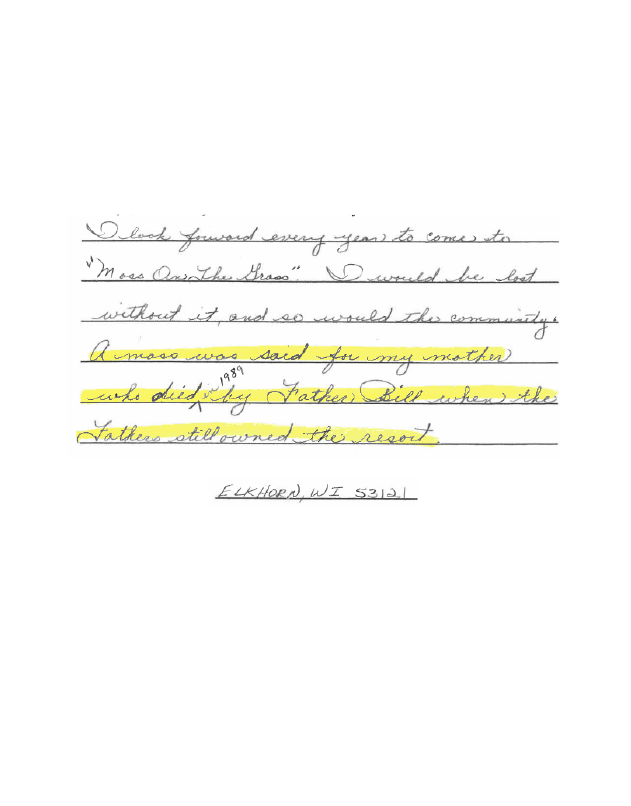 I look forward every year to come to
"Mass On The Grass". I would be lost
without it, and so would the community.
A mass was said for my mother
who died in 1989 by Father Bill when the
Fathers still owned the resort.
ELKHORN, WI 53121